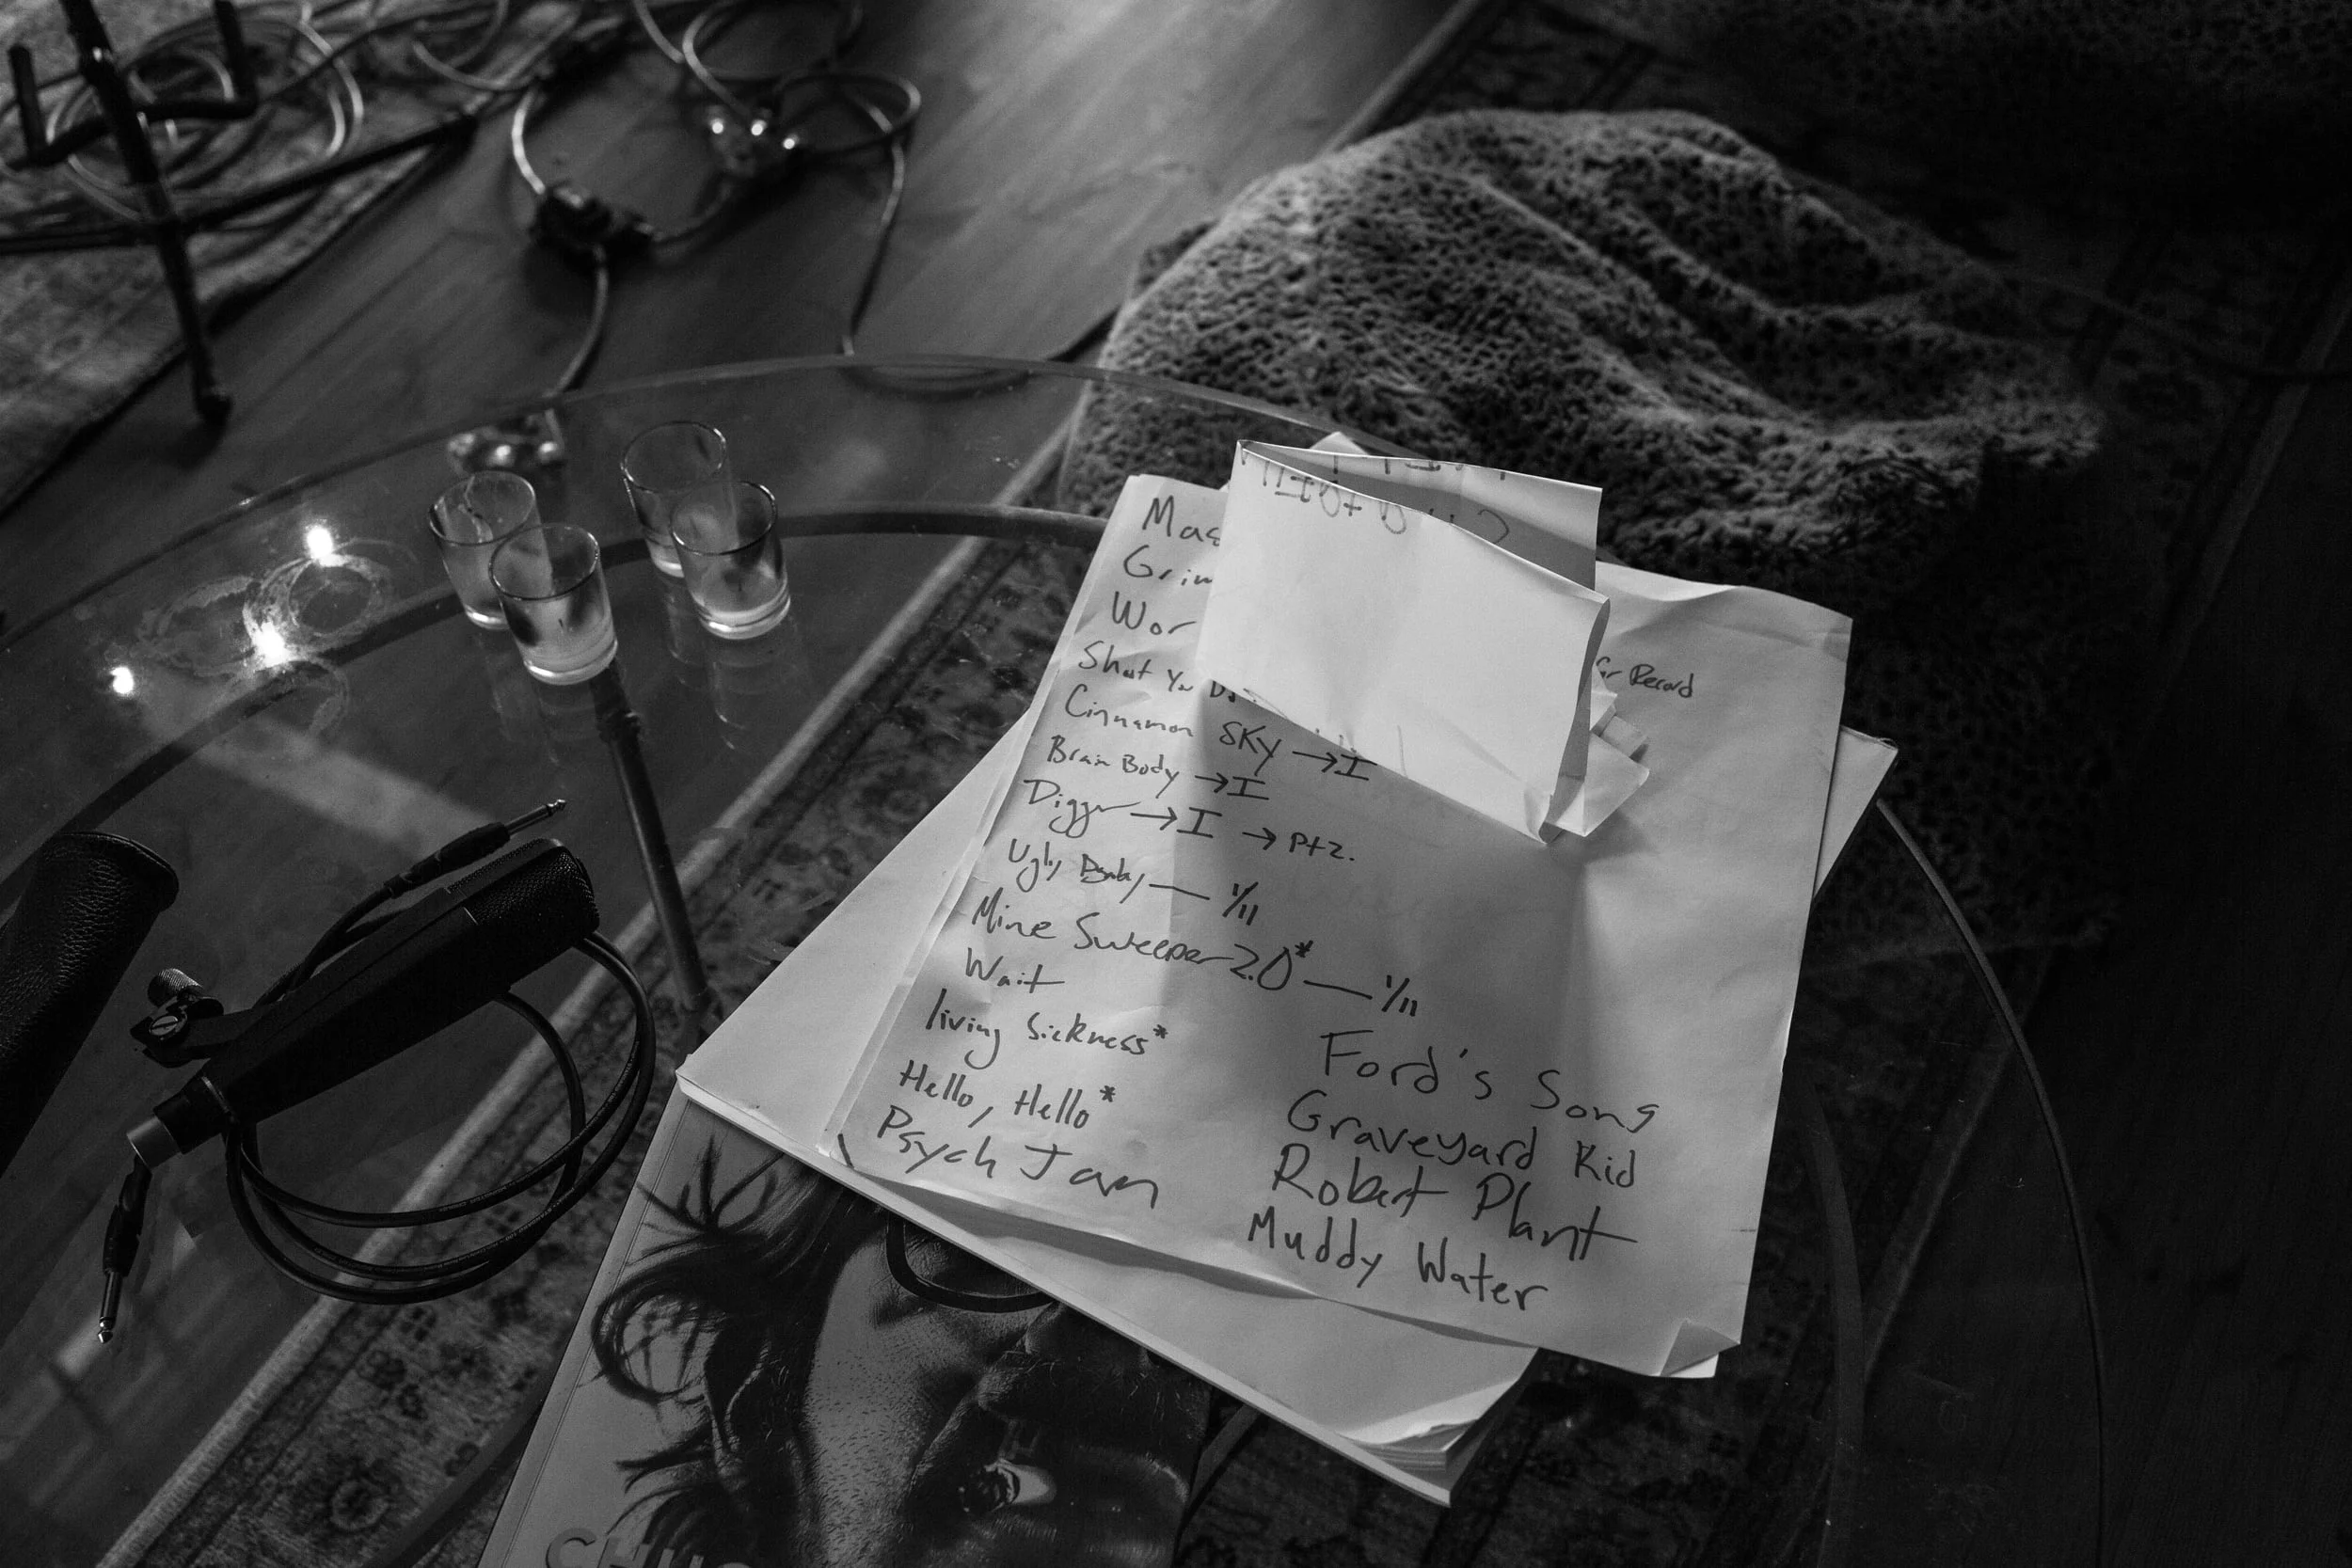 Mas
Grim
Wor
Shut Yr
Cinnamon SKY → I
Brain Body → I
Digger → I → Pt 2.
Ugly, — 1/11
Mine Sweeper 2.0* — 1/11
Wait
living Sickness*
Hello, Hello*
Psych Jam
Record
Ford's Song
Graveyard Kid
Robert Plant
Muddy Water